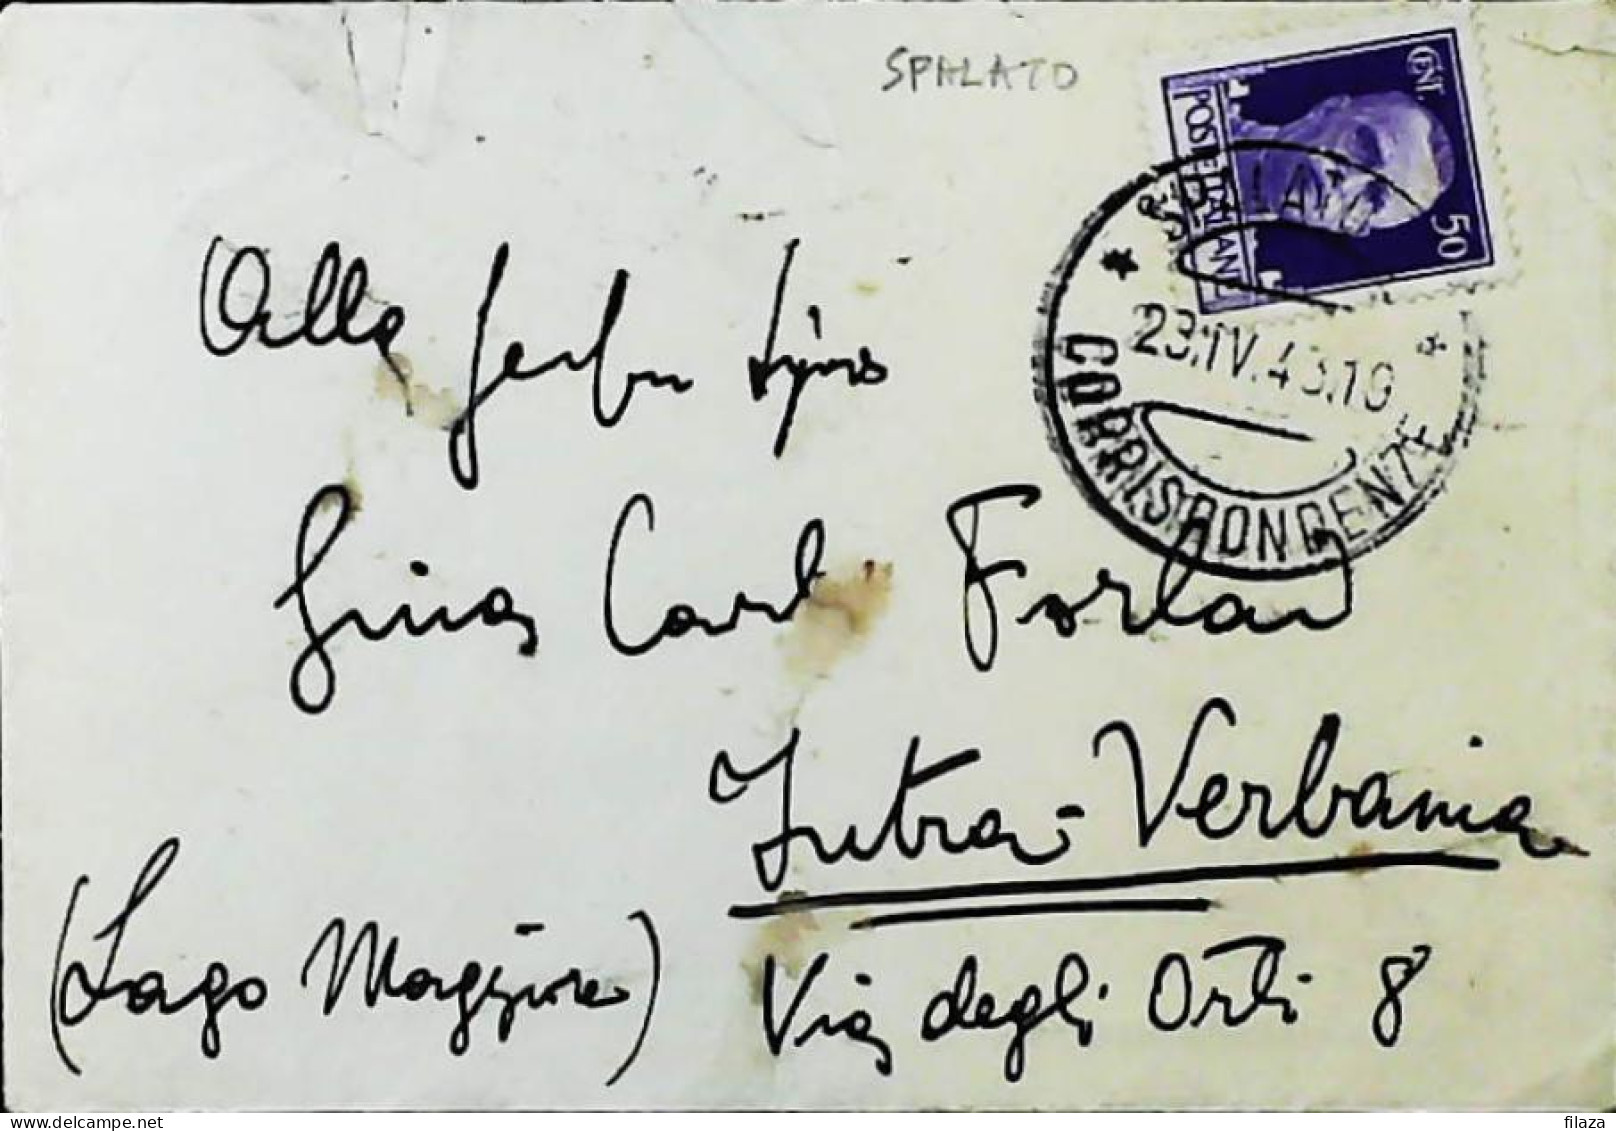 SPALATO
CENT. 50
POSTE ITALIANE
SPALATO
23.IV.43.19
CORRISPONDENZE
Alla
Gina Carl Forlan
Intra - Verbania
(Lago Maggiore)
Via degli Orti 8
filaza